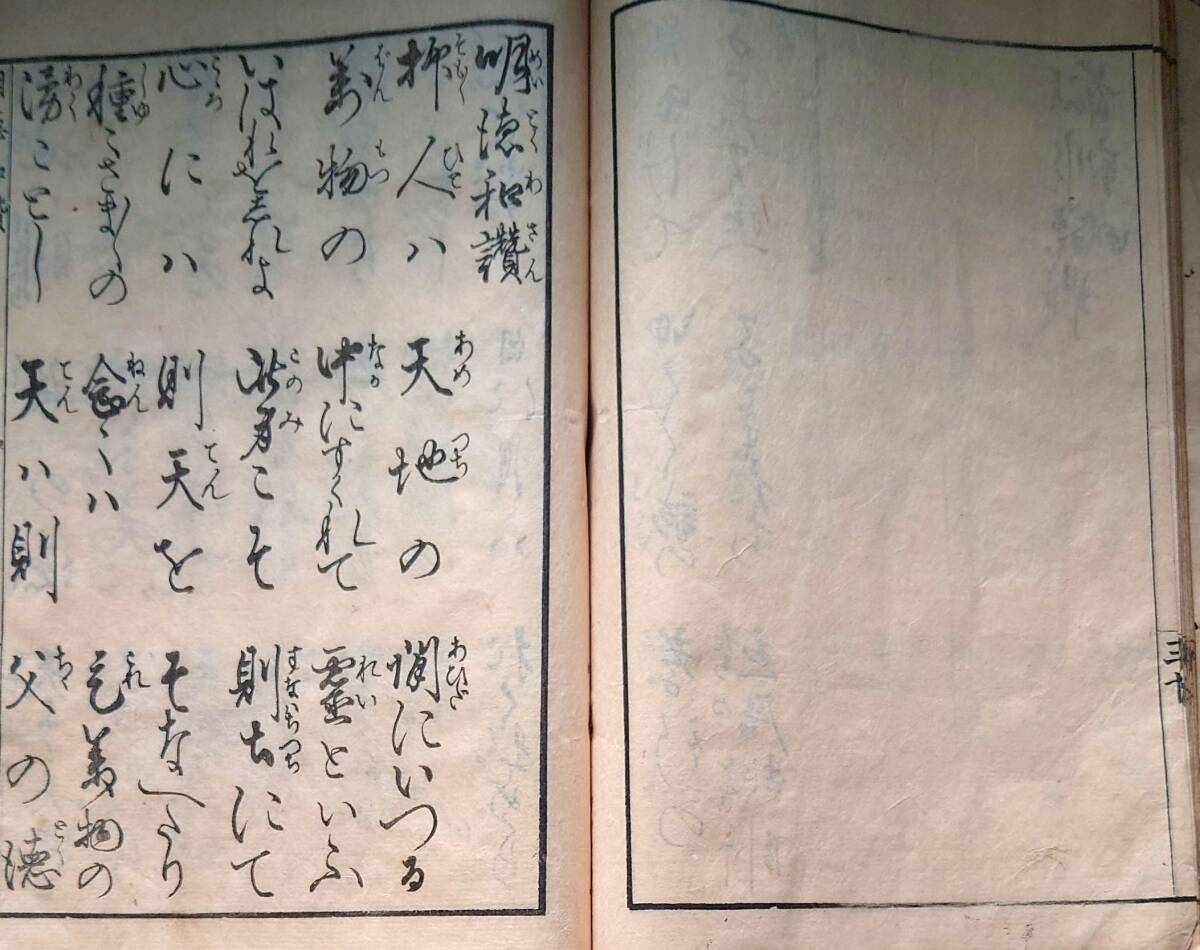 明徳和讃
抑人ハ　天地の　間にいつる
萬物の　中にすくれて　靈といふ
いはれを志れよ　此身こそ　則土にて
心にハ　則天を　そなへたり
種〻さま〴〵の　念〻ハ　是萬物の
湧ことし　天ハ則　父の徳